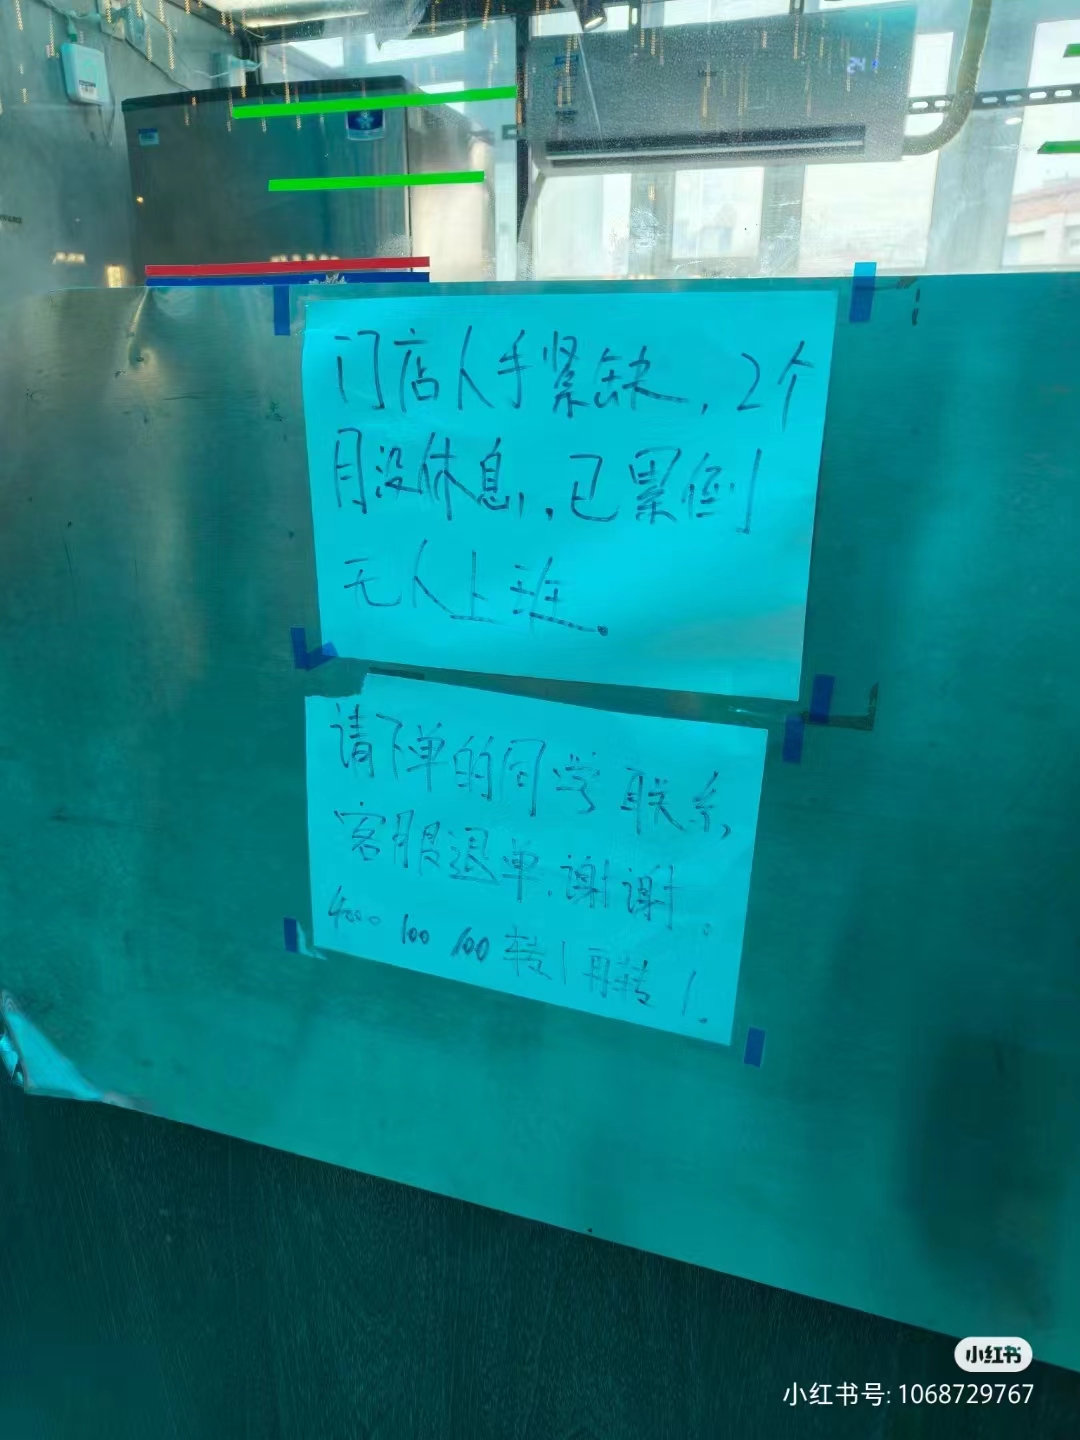 门店人手紧缺，2个
月没休息，已累倒
无人上班。
请下单的同学联系
客服退单，谢谢。
4000 100 100 转1再转1.
小红书
小红书号: 1068729767